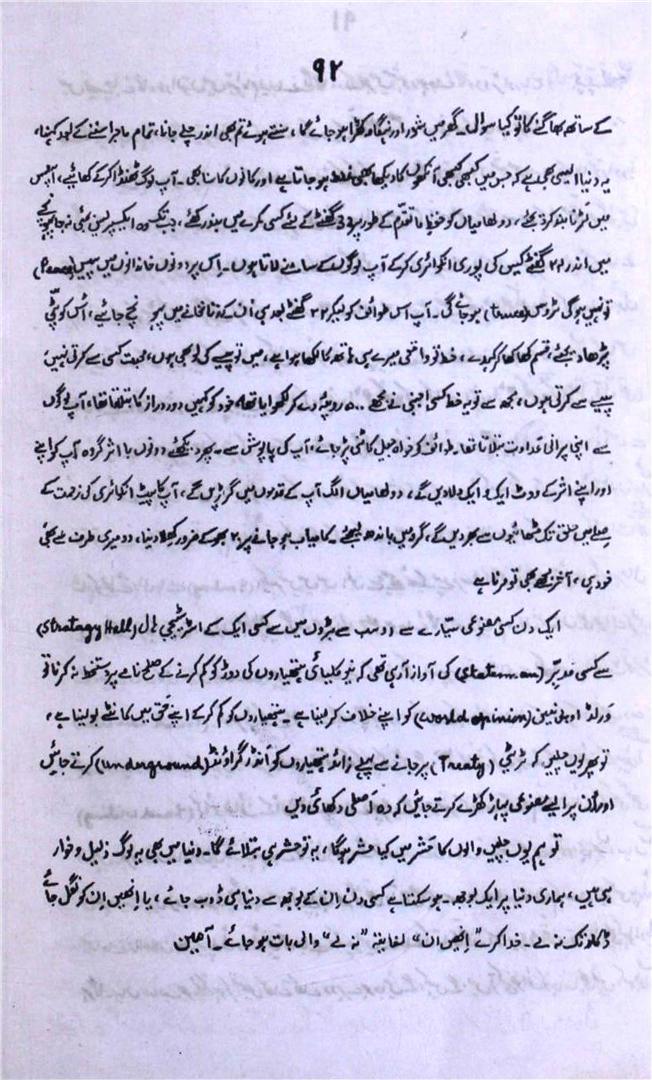 ۹۲
کے ساتھ بھاگنے کا تو کیا سوال۔ گھر میں شور اور ہنگامہ کھڑا ہو جائے گا، سنتے ہوئے تم بھی اندر چلے جانا، تمام ماجرا سننے کے بعد کہنا،
یہ دنیا ایسی بھی ہے کہ جس میں کبھی کبھی آنکھوں کا دیکھا بھی غلط ہو جاتا ہے اور کانوں کا سنا بھی۔ آپ لوگ ٹھنڈا کر کے کھائیے، آپس
میں لڑنا بند کر دیجئے، دولھا میاں کو حفظِ ماتقدّم کے طور پر ۳۶ گھنٹے کے لئے کسی کمرے میں بند رکھئے، جب تک وہ ایکسپریس بمبئی نہ جا پہنچے
میں اندر ۲۴ گھنٹے کیس کی پوری انکوائری کر کے آپ لوگوں کے سامنے لاتا ہوں۔ اِس پر دونوں خاندانوں میں پیس (Peace)
تو نہیں ہوگی ٹروس (truce) ہو جائے گی۔ آپ اس طوائف کو لیکر ۲۳ گھنٹے بعد ہی اُن کے زنانخانے میں پہنچ جائیے، اُس کو پٹّی
پڑھا دیجئے، قسم کھا کھا کر کہدے، خط تو واقعی میرے ہی ہاتھ کا لکھا ہوا ہے، میں تو پیسے کی لوبھی ہوں، محبت کسی سے کرتی نہیں،
پیسے سے کرتی ہوں، مجھ سے تو یہ خط کسی اجنبی نے مجھے ۵۰۰ روپیہ دے کر لکھوایا تھا، خود کو کہیں دور دراز کا بتلاتا تھا، آپ لوگوں
سے اپنی پرانی عداوت بتلاتا تھا۔ طوائف کو خواہ جیل کاٹنی پڑ جائے، آپ کی پاپوش سے۔ پھر دیکھئے دونوں بااثر گروہ آپ کو اپنے
اور اپنے اثر کے ووٹ ایک و ایک دلا دیں گے، دولھا میاں الگ آپ کے قدموں میں گر پڑیں گے، آپ کا پیٹ انکوائری کی زحمت کے
صِلے میں حلق تک مٹھائیوں سے بھر دیں گے، گرہ میں باندھ لیجئے کامیاب ہو جانے پر ۲۰ بھوکے ضرور کھلا دینا، دو میری طرف سے بھی
خود ہی، آخر مجھے بھی تو مرنا ہے
ایک دن کسی مصنوعی سیّارے سے دو سب سے بڑوں میں سے کسی ایک کے اسٹریٹیجی ہال (Strategy Hall)
سے کسی مدبّر (Statesman) کی آواز آرہی تھی کہ نیوکلیائی ہتھیاروں کی دوڑ کو کم کرنے کے صلح نامے پر دستخط نہ کرنا تو
ورلڈ اوپی نین (world opinion) کو اپنے خلاف کر لینا ہے۔ ہتھیاروں کو کم کر کے اپنے حق میں کانٹے بو لینا ہے،
تو پھر یوں چلیں کہ ٹریٹی (Treaty) پر جانے سے پہلے زائد ہتھیاروں کو انڈرگراؤنڈ (Underground) کرتے جائیں
اور اُن پر ایسے مصنوعی پہاڑ کھڑے کرتے جائیں کہ وہ اصلی دکھائی دیں
تو ہم یوں چلیں والوں کا حشر میں کیا حشر ہوگا، یہ تو حشر ہی بتلائے گا۔ دنیا میں بھی یہ لوگ ذلیل و خوار
ہی ہیں، ہماری دنیا پر ایک بوجھ۔ ہو سکتا ہے کسی دن اِن کے بوجھ سے دنیا ہی ڈوب جائے، یا انھیں اِن کو نگل جائے
ڈکار تک نہ لے۔ خدا کرے "انھیں ان" لغایتہ "نہ لے" والی بات ہو جائے۔ آمین